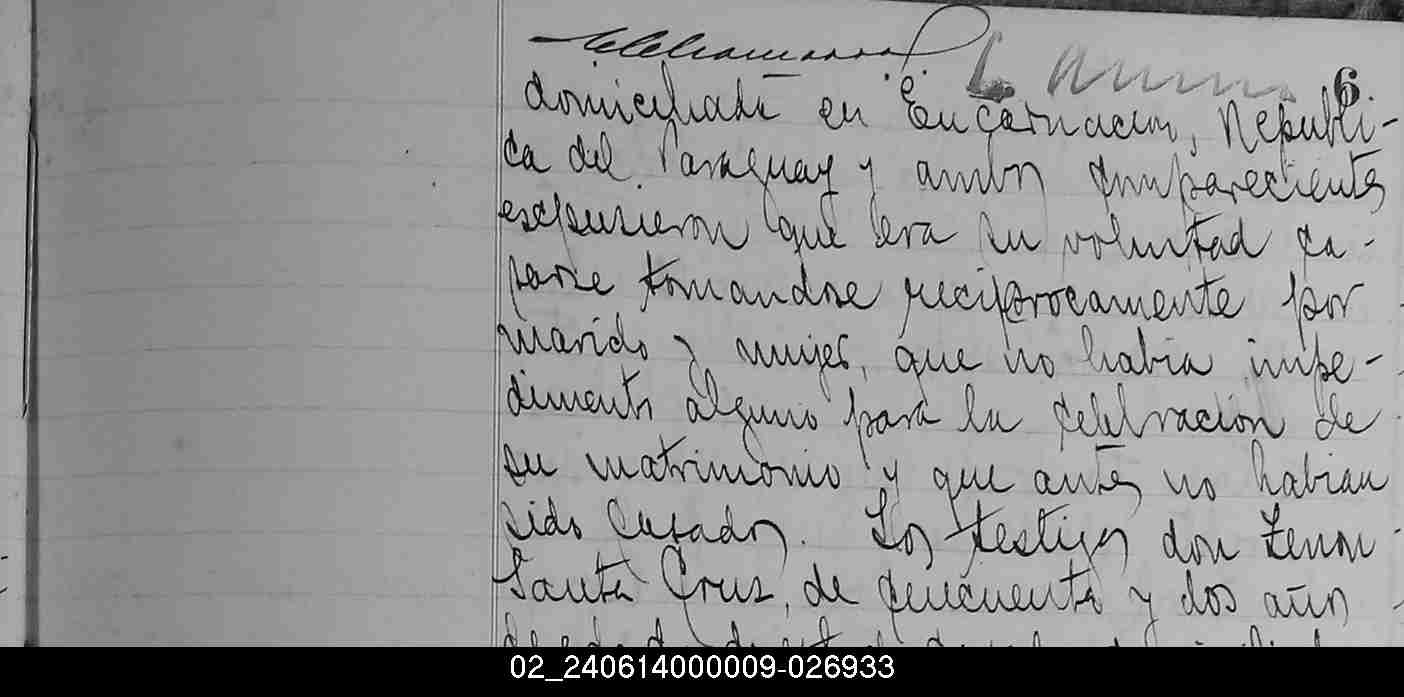 6.
domiciliada en Encarnacion, Republi-
ca del Paraguay y ambos comparecientes
espusieron que era su voluntad ca-
sarse tomandose reciprocamente por
marido y mujer, que no habia impe-
dimento alguno para la celebracion de
su matrimonio y que antes no habian
sido casados. Los testigos don Zenon
Santa Cruz, de cincuenta y dos años
02_240614000009-026933